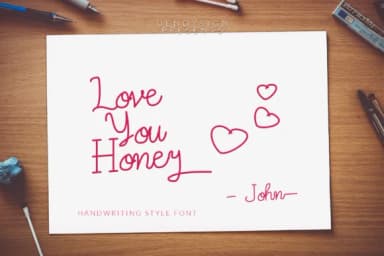 Love
You
Honey
- John
HANDWRITING STYLE FONT